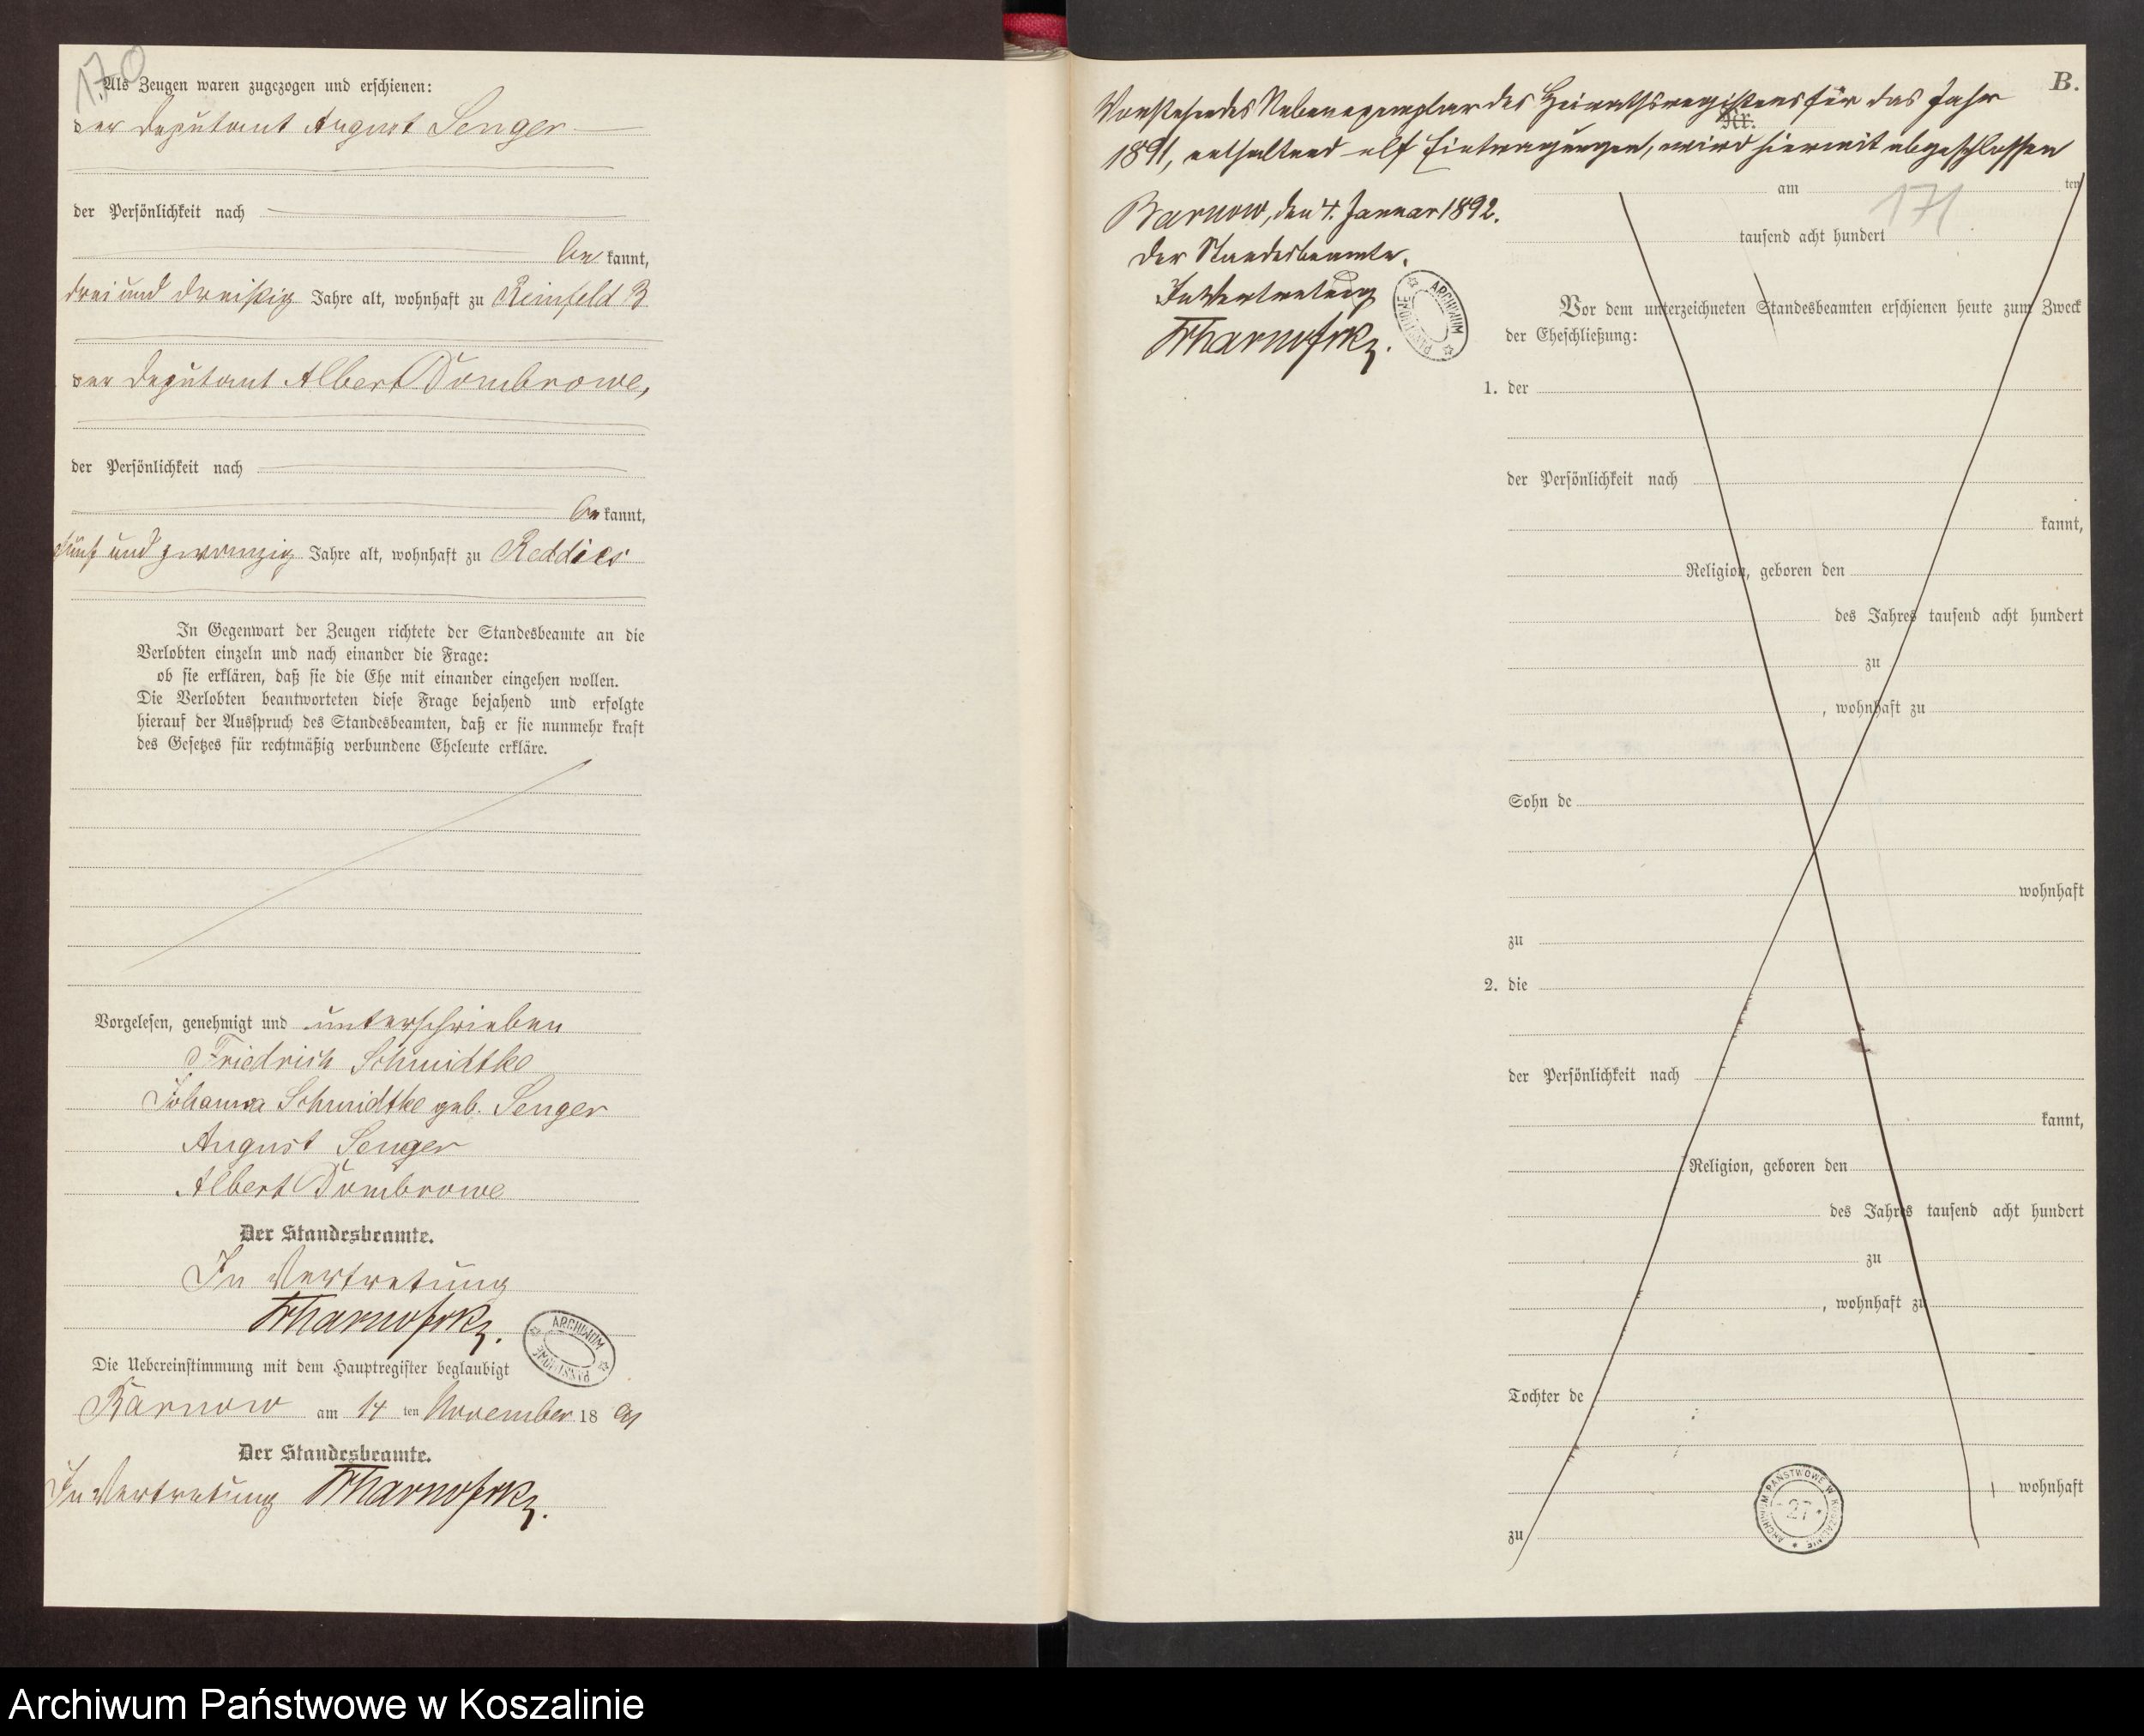 170
Als Zeugen waren zugezogen und erschienen:
der Deputant August Senger
der Persönlichkeit nach
bekannt,
drei und dreißig Jahre alt, wohnhaft zu Reinfeld B
der Deputant Albert Dombrowe,
der Persönlichkeit nach
bekannt,
fünf und zwanzig Jahre alt, wohnhaft zu Reddies
In Gegenwart der Zeugen richtete der Standesbeamte an die
Verlobten einzeln und nach einander die Frage:
ob sie erklären, daß sie die Ehe mit einander eingehen wollen.
Die Verlobten beantworteten diese Frage bejahend und erfolgte
hierauf der Ausspruch des Standesbeamten, daß er sie nunmehr kraft
des Gesetzes für rechtmäßig verbundene Eheleute erkläre.
Vorgelesen, genehmigt und unterschrieben
Friedrich Schmidtke
Johanna Schmidtke geb. Senger
August Senger
Albert Dombrowe
Der Standesbeamte.
In Vertretung
ARCHIWUM PAŃSTWOWE
Die Uebereinstimmung mit dem Hauptregister beglaubigt
Barnow am 14 ten November 18 91
Der Standesbeamte.
In Vertretung
B.
Vorstehendes Nebenexemplar des Heirathsregisters für das Jahr
Nr.
1891, enthaltend elf Eintragungen, wird hiermit abgeschlossen
Barnow, den 4. Januar 1892.
Der Standesbeamte.
In Vertretung
ARCHIWUM PAŃSTWOWE
171
am ten
tausend acht hundert
Vor dem unterzeichneten Standesbeamten erschienen heute zum Zweck
der Eheschließung:
1. der
der Persönlichkeit nach
kannt,
Religion, geboren den
des Jahres tausend acht hundert
zu
, wohnhaft zu
Sohn de
wohnhaft
zu
2. die
der Persönlichkeit nach
kannt,
Religion, geboren den
des Jahres tausend acht hundert
zu
, wohnhaft zu
Tochter de
wohnhaft
zu
ARCHIWUM PAŃSTWOWE W KOSZALINIE
27
Archiwum Państwowe w Koszalinie